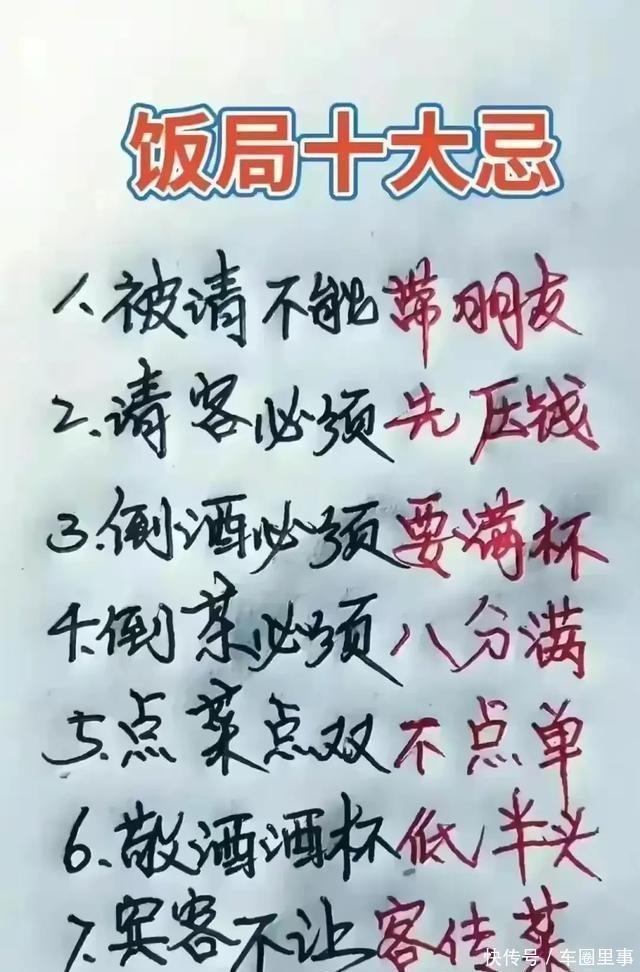 饭局十大忌
1.被请不能带朋友
2.请客必须先压钱
3.倒酒必须要满杯
4.倒茶必须八分满
5.点菜点双不点单
6.敬酒酒杯低半头
7.宾客不让客传菜
快传号/车圈里事